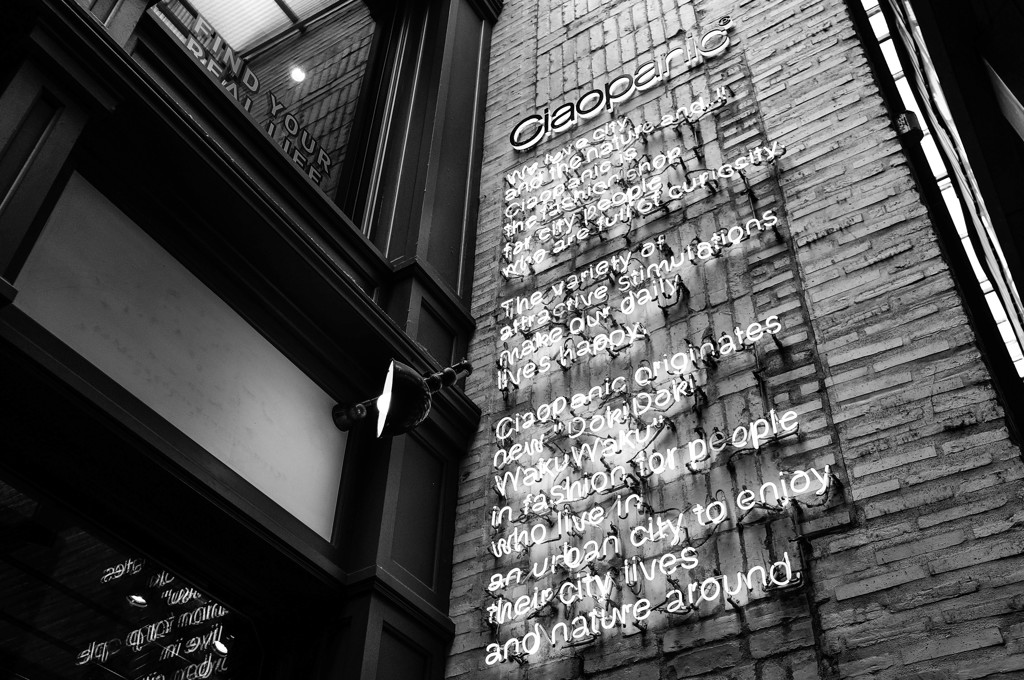 FIND YOUR
REAL LIFE
Ciaopanic®
We love city
and the nature and...!!
Ciaopanic is
the fashion shop
for city people
who are full of curiosity
The variety of
attractive stimulations
make our daily
lives happy.
Ciaopanic originates
new "Doki Doki
Waku Waku"
in fashion for people
who live in
an urban city to enjoy
their city lives
and nature around.